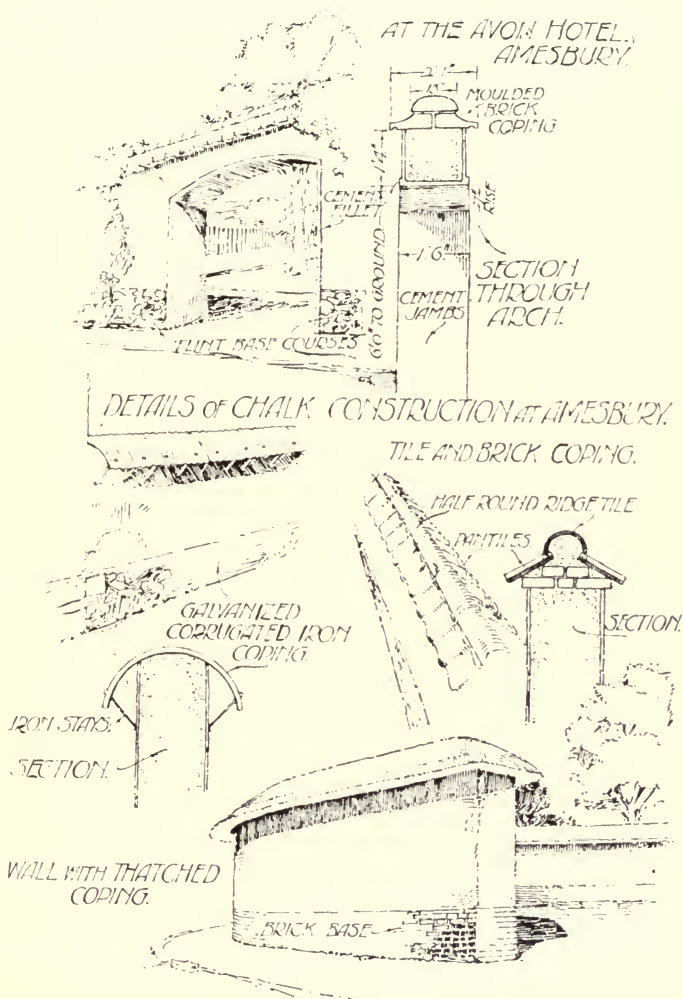 AT THE AVON HOTEL,
AMESBURY.
MOULDED
BRICK
COPING
CEMENT
FILLET
RISE
1'6"
6'0" TO GROUND
CEMENT
JAMBS
SECTION
THROUGH
ARCH.
FLINT BASE COURSES
DETAILS OF CHALK CONSTRUCTION AT AMESBURY.
TILE AND BRICK COPING.
HALF ROUND RIDGE TILE
PANTILES.
SECTION.
GALVANIZED
CORRUGATED IRON
COPING.
IRON STAYS.
SECTION.
WALL WITH THATCHED
COPING.
BRICK BASE